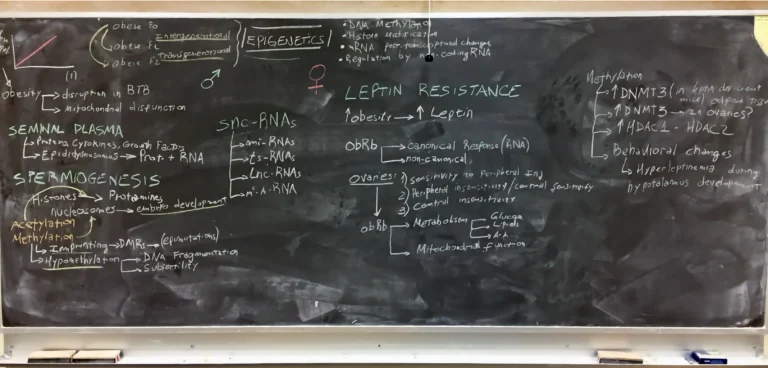 obese F0
obese F1
obese F2
Intergenerational
Transgenerational
EPIGENETICS
• DNA Methylation
• Histone modification
• RNA post-transcriptional changes
• Regulation by non-coding RNA
♂
♀
(1)
obesity → disruption in BTB
→ Mitochondrial disfunction
SEMINAL PLASMA
→ Proteins Cytokines, Growth Factors
→ Epididymosomes → Prot. + RNA
SPERMIOGENESIS
Histones → Protamines
nucleosomes → embryo development
Acetylation
Methylation
→ Imprinting → DMRs → (epimutations)
→ Hypomethylation → DNA Fragmentation
→ Subfertility
snc-RNAs
→ mi-RNAs
→ ts-RNAs
→ Lnc-RNAs
→ m⁶-A-RNA
LEPTIN RESISTANCE
↑obesity → ↑ Leptin
obRb → canonical Response (RNA)
→ non-canonical
OVARIES: 1) Sensitivity to Peripheral Inj
2) Peripheral insensitivity/central sensitivity
3) Central insensitivity
obRb → Metabolism
Glucose
Lipids
AA
→ Mitochondrial function
Methylation
→ ↑DNMT3 (in leptin deficient
mice) adipose tissue
→ ↑DNMT3 → in ovaries?
→ ↑HDAC1 - HDAC2
→ Behavioral changes
→ Hyperleptinemia during
hypotalamus development